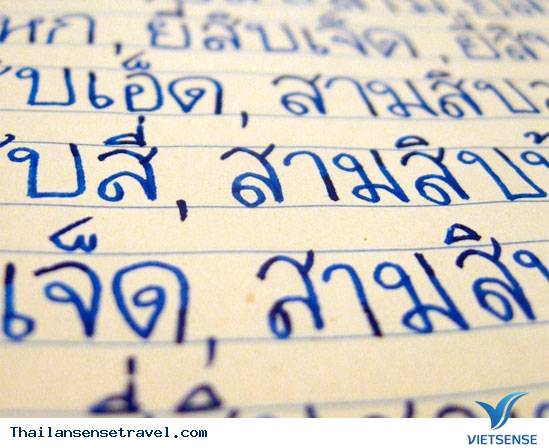 หก, ยี่สิบเจ็ด, ยี่สิ
บเอ็ด, สามสิบ
บสี่, สามสิบ
เจ็ด, สามสิบ
Thailansensetravel.com
VIETSENSE